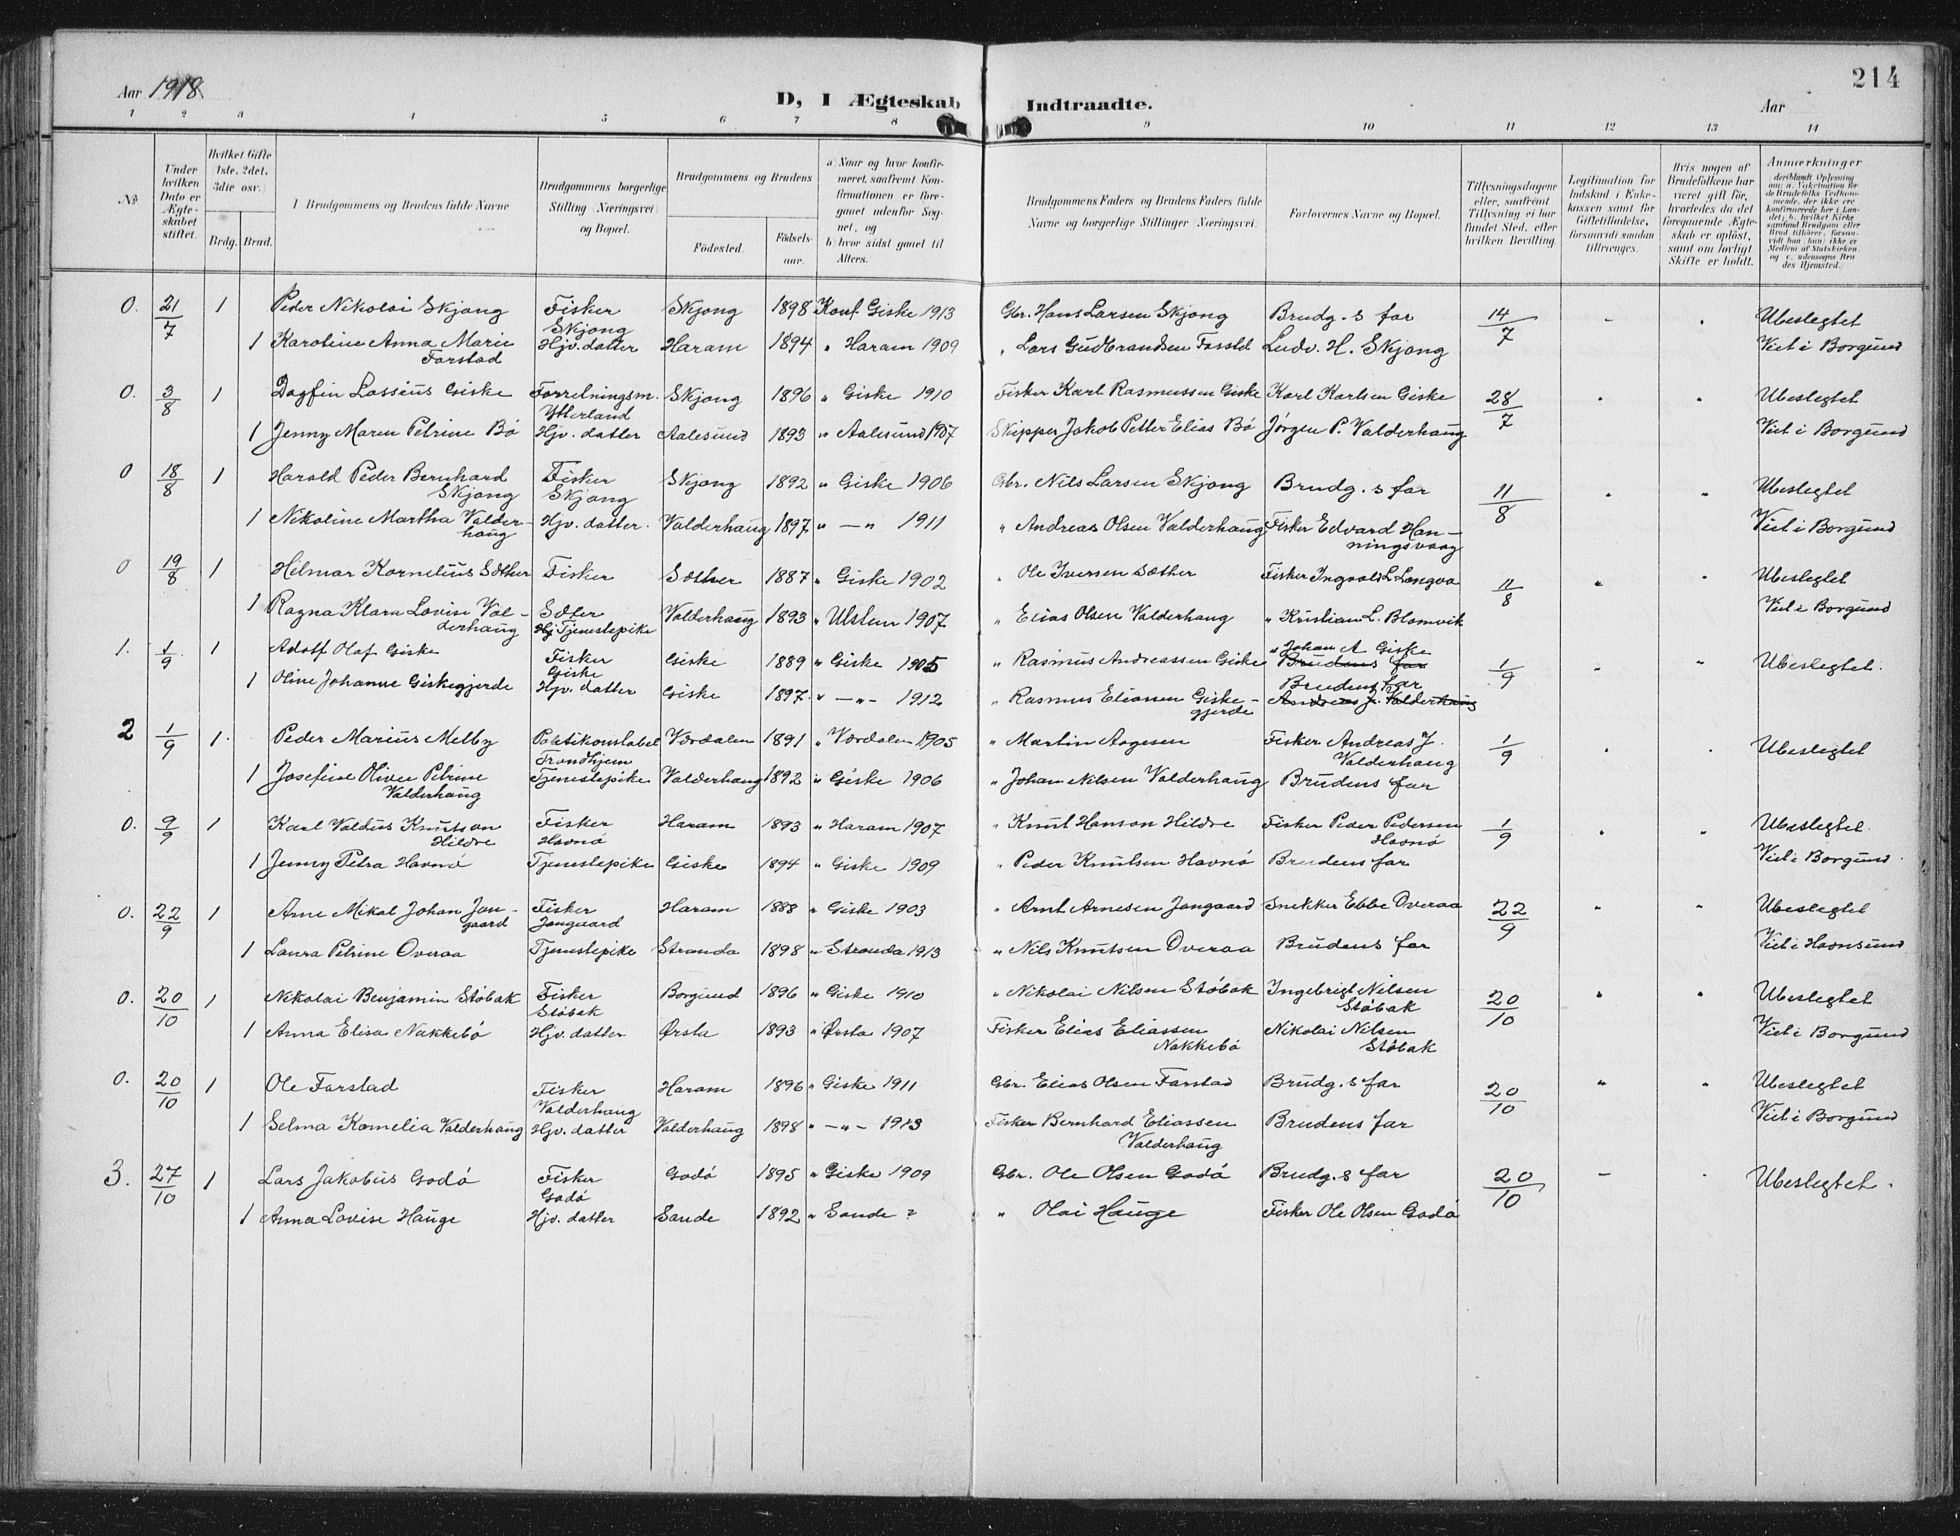 Aar 1918
D, I Ægteskab Indtraadte.
Aar
214
1 2 3 4 5 6 7 8 9 10 11 12 13 14
No
Under hvilken Dato er Ægteskabet stiftet.
Hvilket Gifte (1ste, 2det, 3die osv.)
Brdg. Brud.
1 Brudgommens og Brudens fulde Navne
Brudgommens borgerlige Stilling (Næringsvei) og Bopæl.
Brudgommens og Brudens
Födested.
Födselsaar.
a) Naar og hvor konfirmeret, saafremt Konfirmationen er foregaaet udenfor Sognet, og
b) hvor sidst gaaet til Alters.
Brudgommens Faders og Brudens Faders fulde Navne og borgerlige Stillinger (Næringsvei).
Forlovernes Navne og Bopæl.
Tillysningsdagene eller, saafremt Tillysning ei har fundet Sted, efter hvilken Bevilling.
Legitimation for Indskud i Enkekassen samt for Giftetilladelse, forsaavidt saadan tiltrænges.
Hvis nogen af Brudefolkene har været gift för, hvorledes da det foregaaende Ægteskab er oplöst, samt om lovligt Skifte er holdt.
Anmerkninger
deriblandt Oplysning om: a. Vakcination for de Brudefolks Vedkommende, der ikke ere konfirmerede her i Landet; b. hvilket Kirkesamfund Brudgom eller Brud tilhörer, forsaavidt han (hun) ikke er Medlem af Statskirken, og c. udensogns Brudes Hjemsted.
0. 21/7 1 Peder Nikolai Skjong Fisker Skjong Skjong 1898 Konf. Giske 1913 Gbr. Hans Larsen Skjong Brudg.s far 14/7 - . Ubeslegtet
1 Karoline Anna Marie Farstad Hjv. datter Haram 1894 " Haram 1909 " Lars Gudbrandsen Farstad Ludv. H. Skjong Viet i Borgund
0. 3/8 1 Dagfin Lassëus Giske Forretningsm. Ytterland Skjong 1896 " Giske 1910 Fisker Karl Rasmussen Giske Karl Karlsen Giske 28/7 Ubeslegtet
1 Jenny Maren Petrine Bö Hjv. datter Aalesund 1893 " Aalesund 1907 Skipper Jakob Petter Elias Bö Jörgen P. Valderhaug Viet i Borgund
0 18/8 1 Harald Peder Bernhard Skjong Fisker Skjong Skjong 1892 " Giske 1906 Gbr. Nils Larsen Skjong Brudg.s far 11/8 Ubeslegtet
1 Nikoline Martha Valderhaug Hjv. datter. Valderhaug 1897 " — " 1911 " Andreas Olsen Valderhaug Fisker Edvard Hanningsvaag Viet i Borgund
0 19/8 1 Hilmar Kornelius Sæther Fisker Sæther 1887 " Giske 1902 " Ole Iversen Sæther Fisker Ingvald L. Longva 11/8 Ubeslegtet
1 Ragna Klara Lovise Valderhaug Sæter Tjenestepike Valderhaug 1893 " Ulstein 1907. " Elias Olsen Valderhaug " Kristian L. Blomvik Viet i Borgund
1. 1/9 1 Adolf Olaf Giske Fisker Giske Giske 1889 " Giske 1905 " Rasmus Andreassen Giske " Johan A Giske Brudens far 1/9 Ubeslegtet.
1 Oline Johanne Giskegjerde Hjv. datter Giske 1897. " — " - 1912 " Rasmus Eliassen Giskegjerde Brudens far Andreas J. Valderhaug
2 1/9 1. Peder Marius Melby Politikonstabel Trondhjem Værdalen 1891 " Værdalen 1905 " Martin Aagesen Fisker Andreas J. Valderhaug 1/9 Ubeslegtet
1 Josefine Olivee Petrine Valderhaug Tjenestepike Valderhaug 1892 " Giske 1906 " Johan Nilsen Valderhaug Brudens far
0. 9/9 1 Karl Valdus Knutson Hildre Fisker Havnö Haram 1893 " Haram 1907 " Knut Hanson Hildre Fisker Peder Pedersen Havnö 1/9 Ubeslegtet.
1 Jenny Petra Havnö Tjenestepike Giske 1894 " Giske 1909 " Peder Knutsen Havnö Brudens far Viet i Borgund.
0. 22/9 1 Arne Mikal Johan Jangaard Fisker Jangaard Haram 1888 " Giske 1903 " Arnt Arnesen Jangaard Snekker Ebbe Overaa 22/9 Ubeslegtet
1 Laura Petrine Overaa Tjenestepike Stranda 1898 " Stranda 1913 " Nils Knutsen Overaa Brudens far Viet i Havnsund
0. 20/10 1 Nikolai Benjamin Stöbak Fisker Stöbak Borgund 1896 " Giske 1910 " Nikolai Nilsen Stöbak Ingebrigt Nilsen Stöbak 20/10 Ubeslegtet
1 Anna Elisa Nakkebö Hjv. datter Ørsta 1893 " Ørsta 1907 Fisker Elias Eliassen Nakkebö Nikolai Nilsen Stöbak Viet i Borgund
0. 20/10 1 Ole Farstad Fisker Valderhaug Haram 1896 " Giske 1911 Gbr. Elias Olsen Farstad Brudg.s far 20/10 Ubeslegtet
1 Selma Kornelia Valderhaug Hjv. datter Valderhaug 1898 " — " - 1913 Fisker Bernhard Eliassen Valderhaug Brudens far Viet i Borgund
3. 27/10 1 Lars Jakobus Godö Fisker Godö Godö 1895 " Giske 1909 Gbr. Ole Olsen Godö Brudg.s far 20/10 - . Ubeslegtet.
1 Anna Lovise Hauge Hjv. datter Sande 1892 " Sande ? " Olai Hauge Fisker Ole Olsen Godö